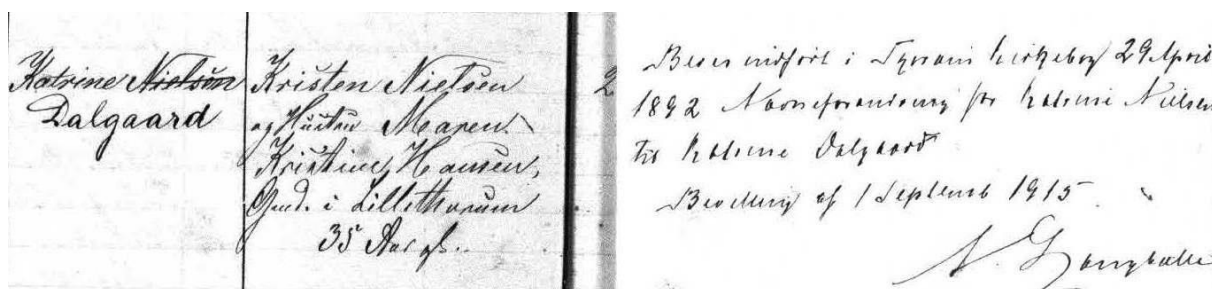 Katrine Nielsen
Dalgaard
Kristen Nielsen
og Hustru Maren
Kristine Hansen,
Gmd. i Lillethorum
35 Aar gl.
2
indført i Kirkebog 29 April
1892 Navneforandring for Katrine Nielsen
til Katrine Dalgaard
Bevilling af 1 Septemb 1915.